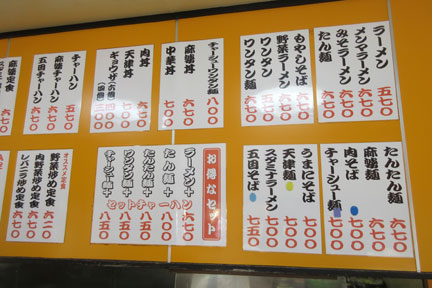 ラーメン 五七〇
メンマラーメン 六七〇
みそラーメン 六七〇
たん麺 六七〇
もやしそば 六七〇
野菜ラーメン 六七〇
ワンタン麺
ワンタン
チャーシューワンタン麺 八〇〇
麻婆丼 七〇〇
中華丼 七〇〇
肉丼 六七〇
天津丼 七〇〇
ギョウザ 四〇〇
チャーハン 六七〇
麻婆チャーハン 七五〇
五目チャーハン 七五〇
麻婆定食
たんたん麺 六七〇
麻婆麺 六七〇
肉そば 六七〇
チャーシュー麺 七〇〇
うまにそば 七〇〇
天津麺 七〇〇
スタミナラーメン 七〇〇
五目そば 七五〇
お得なセット
ラーメン+ 六七〇
たん麺+ 七五〇
たんたん麺+ 八五〇
ワンタン麺+ 八五〇
チャーシュー麺+ 八五〇
セットチャーハン
オススメ定食
野菜炒め定食 六二〇
肉野菜炒め定食 六七〇
レバニラ炒め定食 六七〇